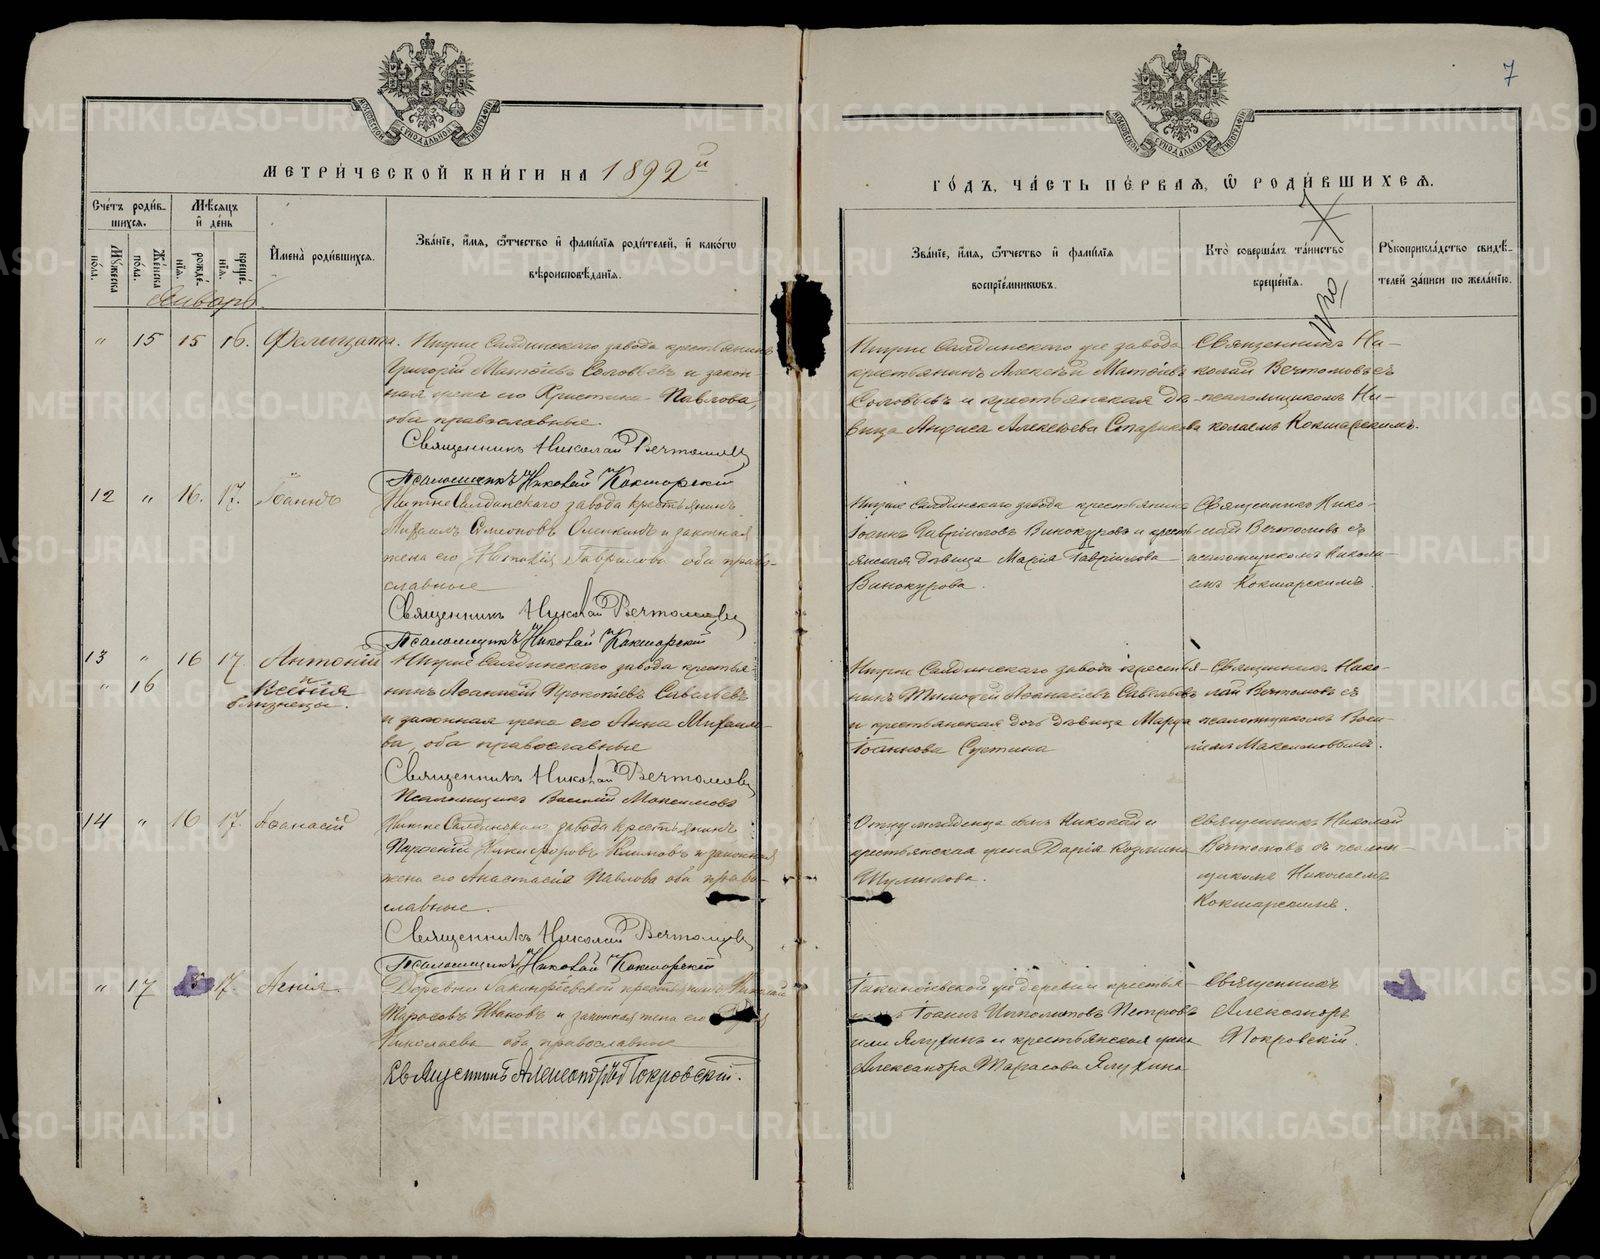 7
МЕТРИ́ЧЕСКОЙ КНИ́ГИ НА 1892 й
ГО́ДЪ, ЧА́СТЬ ПЕ́РВАЯ, Ѽ РОДИ́ВШИХСЯ.
Сче́тъ роди́в-
шихся.
Му́жеска
по́ла.
Же́нска
по́ла.
Мѣ́сяцъ
и҆ де́нь
рожде́-
нїя.
креще́-
нїя.
И҆мена̀ роди́вшихся.
Зва́нїе, и҆́мя, ѻ҆́тчество и҆ фами́лїя роди́телей, и҆ како́гѡ
вѣроисповѣ́данїя.
Зва́нїе, и҆́мя, ѻ҆́тчество и҆ фами́лїя
воспрїе́мникѡвъ.
Кто̀ соверша́лъ та́инство
креще́нїя.
Рꙋкоприкла́дство свидѣ́-
телей за́писи по жела́нїю.
Январь
" 15 15 16. Фелицата. Нижне Салдинскаго завода крестьянинъ
Григорій Матѳіевъ Соловьевъ и закон-
ная жена его Христина Павлова,
оба православные.
Священникъ Николай Вечтомовъ
Псаломщикъ Николай Кокшарскій
Нижне Салдинскаго же завода
крестьянинъ Алексѣй Матѳіевъ
Соловьевъ и крестьянская дѣ-
вица Анфиса Алексѣева Старикова
Священникъ Ни-
колай Вечтомовъ съ
псаломщикомъ Ни-
колаемъ Кокшарскимъ.
12 " 16. 17. Іоаннъ
Нижне Салдинскаго завода крестьянинъ
Михаилъ Симеоновъ и законная
жена его Гаврилова оба право-
славные
Священникъ Николай Вечтомовъ
Псаломщикъ Николай Кокшарскій
Нижне Салдинскаго завода крестьянинъ
Іоаннъ Гавріиловъ Винокуровъ и кресть-
янская дѣвица Марія Гавріилова
Винокурова.
Священникъ Нико-
лай Вечтомовъ съ
псаломщикомъ Никола-
емъ Кокшарскимъ.
13 " 16 17 Антоній Нижне Салдинскаго завода крестья-
" 16 Ксенія
близнецы.
нинъ Аѳанасій Прокопіевъ Савельевъ
и законная жена его Анна Михаило-
ва, оба православные
Священникъ Николай Вечтомовъ
Псаломщикъ Василій Максимовъ
Нижне Салдинскаго завода крестья-
нинъ Тимоѳей Аѳанасіевъ Савельевъ
и крестьянская дочь дѣвица Марѳа
Іоаннова
Священникъ Нико-
лай Вечтомовъ съ
псаломщикомъ Васи-
ліемъ Максимовымъ.
14 " 16 17. Аѳанасій
Нижне Салдинскаго завода крестьянинъ
Никифоровъ Климовъ и законная
жена его Анастасія Павлова оба право-
славные.
Священникъ Николай Вечтомовъ
Псаломщикъ Николай Кокшарскій
крестьянская жена Дарія Козмина
Шумилова.
Священникъ Николай
Вечтомовъ съ псалом-
щикомъ Николаемъ
Кокшарскимъ.
" 17 15 17. Агнія
Деревни крестьянинъ Николай
Тарасовъ Ивановъ и законная жена его
Николаева оба православные
Священникъ Александръ Покровскій.
же деревни крестья-
нинъ Іоаннъ Ипполитовъ Петровъ
или Ялунинъ и крестьянская жена
Александра Тарасова Ялунина
Священникъ
Александръ
Покровскій.
METRIKI.GASO-URAL.RU